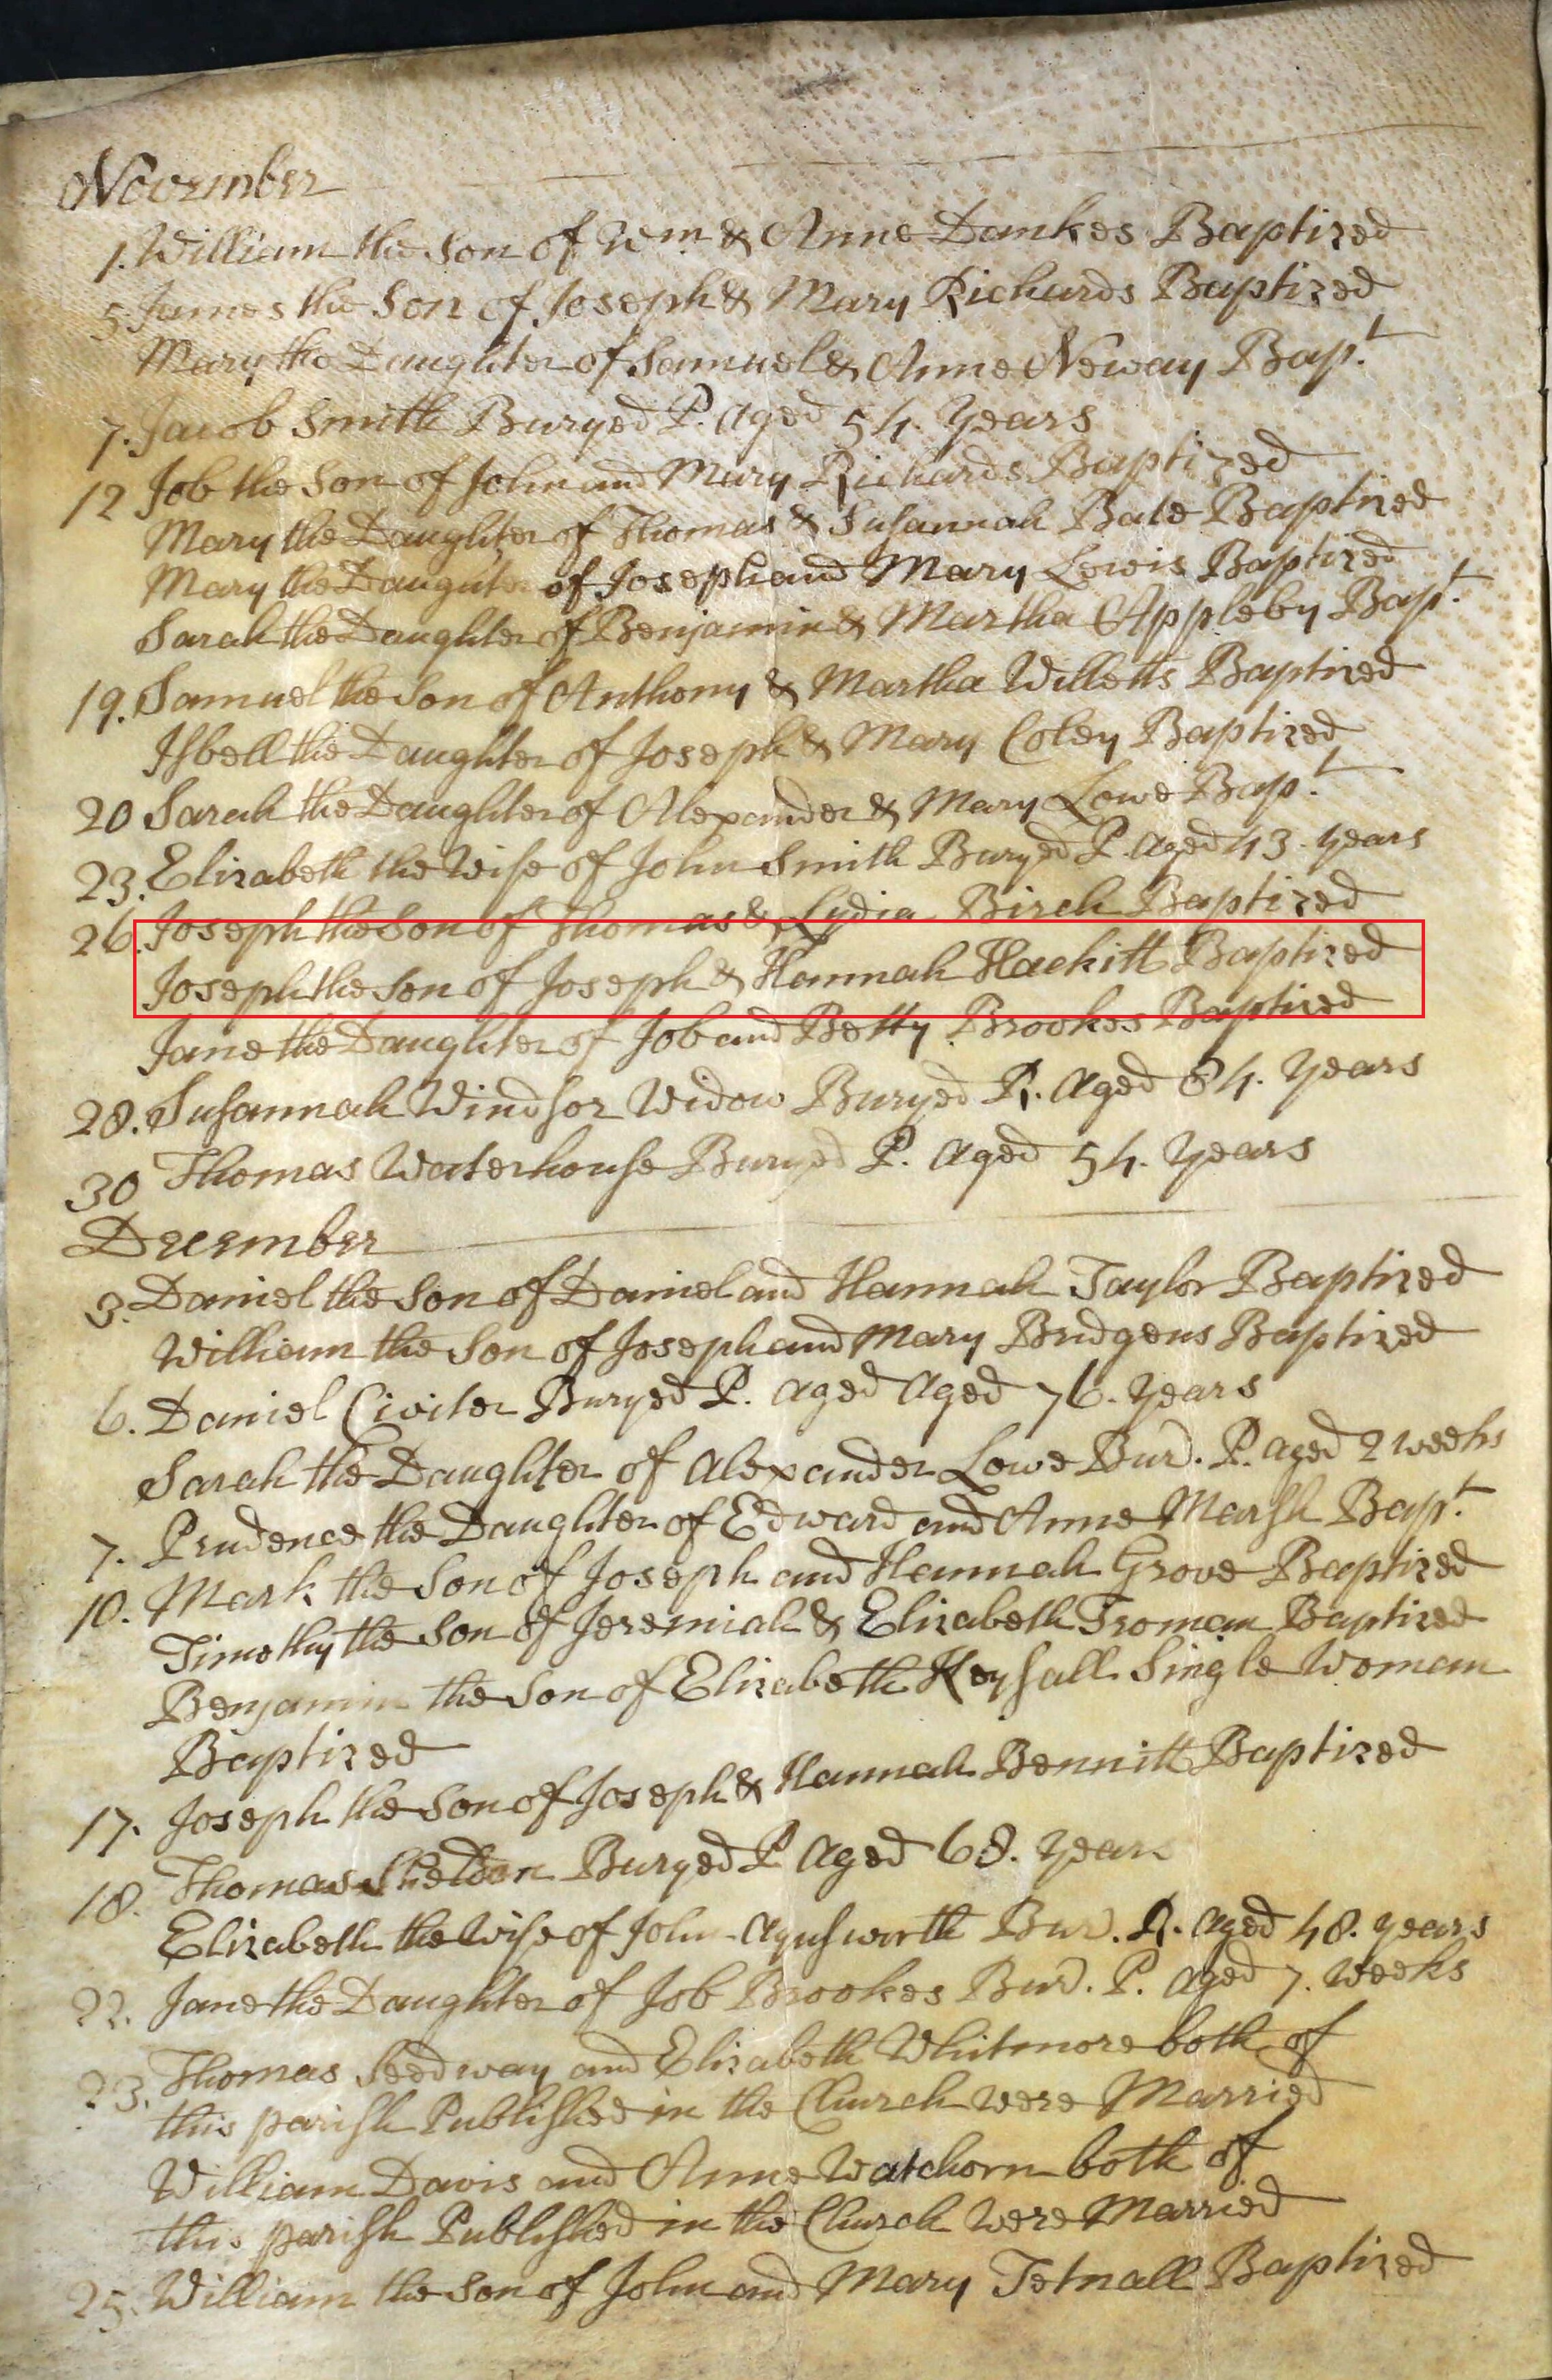 November
1. William the Son of Wm & Anne Dankes Baptized
5. James the Son of Joseph & Mary Richards Baptized
Mary the Daughter of Samuel & Anne Neway Bapt.
7. Jacob Smith Buryed P. aged 54. Years
12 Job the Son of John and Mary Richards Baptized
Mary the Daughter of Thomas & Susannah Bate Baptized
Mary the Daughter of Joseph and Mary Lewis Baptized
Sarah the Daughter of Benjamin & Martha Appleby Bapt.
19. Samuel the Son of Anthony & Martha Willetts Baptized
Isbell the Daughter of Joseph & Mary Coley Baptized
20 Sarah the Daughter of Alexander & Mary Lowe Bapt.
23. Elizabeth the Wife of John Smith Buryed P. aged 43. years
26. Joseph the Son of Thomas & Lydia Birch Baptized
Joseph the Son of Joseph & Hannah Hackitt Baptized
Jane the Daughter of Job and Betty Brookes Baptized
28. Susannah Windsor Widow Buryed R. aged 84. Years
30 Thomas Waterhouse Buryed P. aged 54. Years
December
3. Daniel the Son of Daniel and Hannah Taylor Baptized
William the Son of Joseph and Mary Bridgens Baptized
6. Daniel Civiter Buryed P. aged aged 76. Years
Sarah the Daughter of Alexander Lowe Bur'd. P. aged 2 weeks
7. Prudence the Daughter of Edward and Anne Marsh Bapt.
10. Mark the Son of Joseph and Hannah Grove Baptized
Timothy the Son of Jeremiah & Elizabeth Troman Baptized
Benjamin the Son of Elizabeth Heysall Single Woman
Baptized
17. Joseph the Son of Joseph & Hannah Bennitt Baptized
18. Thomas Sheldon Buryed P. aged 68. Years
Elizabeth the Wife of John Bur'd. R. aged 48. years
22. Jane the Daughter of Job Brookes Bur'd. P. aged 7. weeks
23. Thomas Seedway and Elizabeth Whitmore both of
this parish Published in the Church were Married
William Davis and Anne Watchorn both of
this parish Published in the Church were Married
25. William the Son of John and Mary Tetnall Baptized